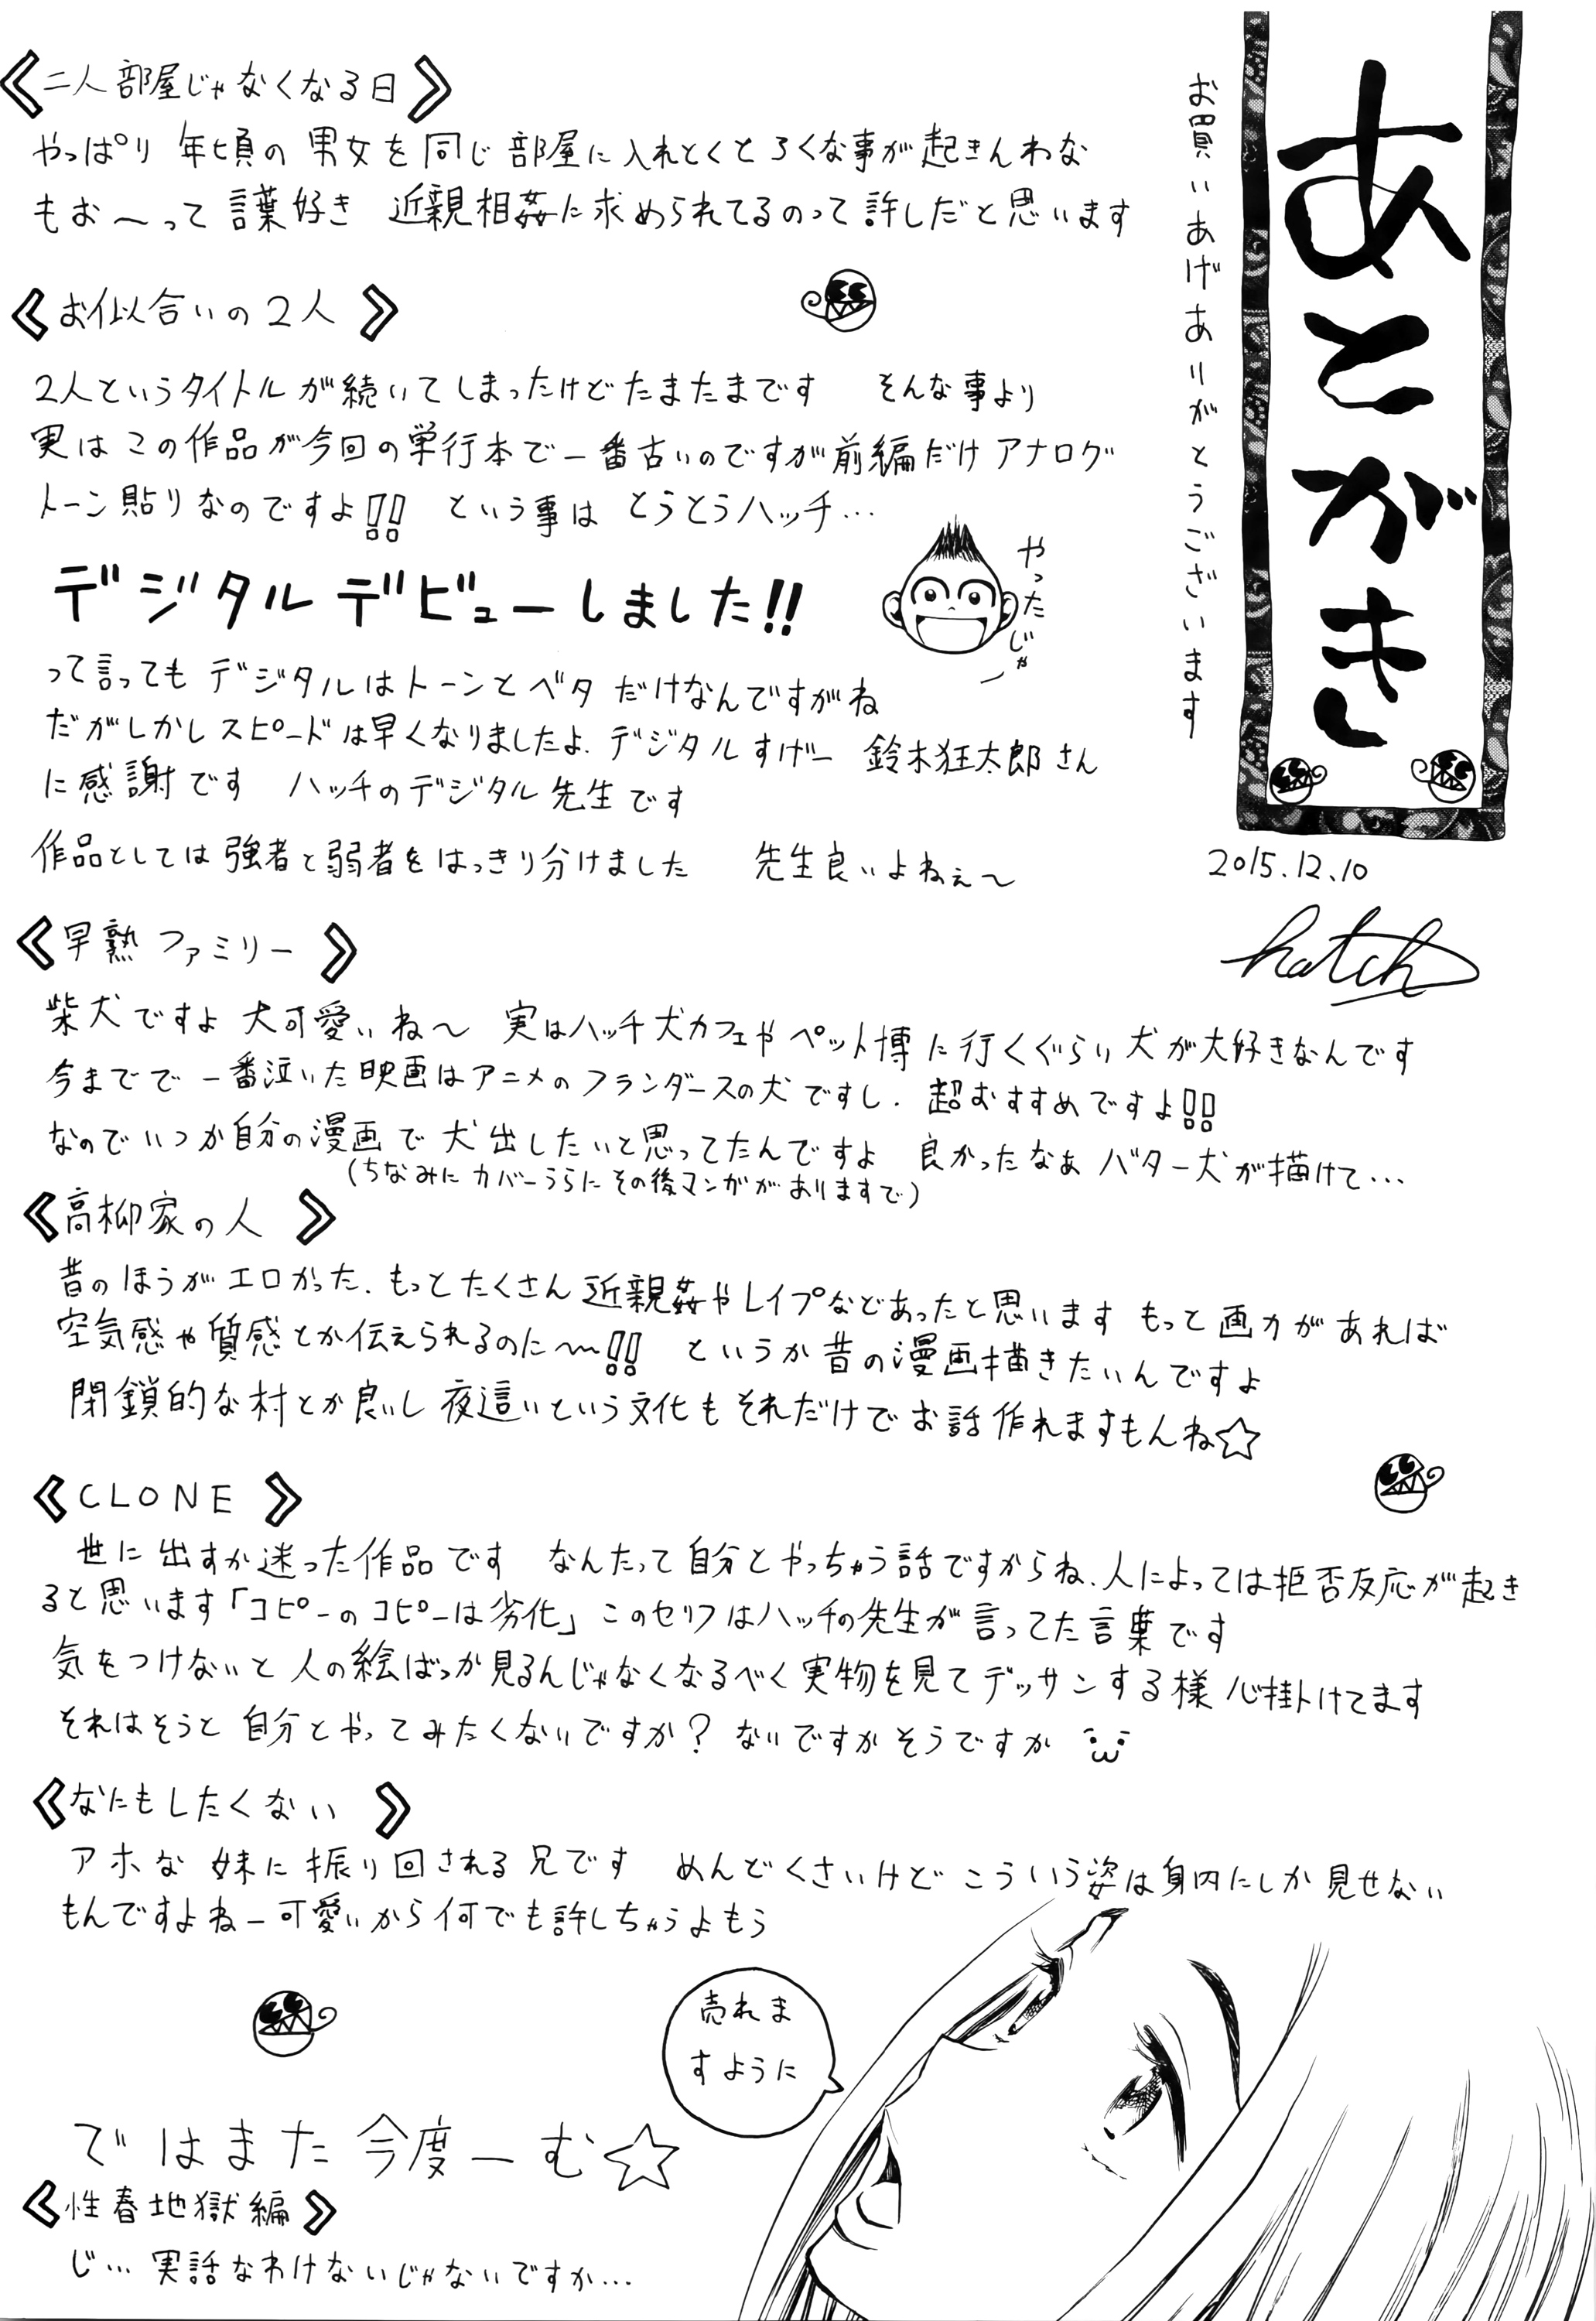 あとがき
お買いあげありがとうございます
2015.12.10
hatch
《二人部屋じゃなくなる日》
やっぱり 年頃の 男女を 同じ 部屋に 入れとくと ろくな事が 起きんわな
もお〜って 言葉好き 近親相姦に求められてるのって 許しだと思います
《お似合いの2人》
2人というタイトルが続いてしまったけどたまたまです そんな事より
実はこの作品が今回の単行本で一番古いのですが前編だけアナログ
トーン貼りなのですよ!! という事は とうとうハッチ…
デジタルデビューしました!!
やったじゃー
って言っても デジタルはトーンとベタだけなんですがね
だがしかしスピードは早くなりましたよ、デジタルすげー 鈴木狂太郎さん
に感謝です ハッチのデジタル先生です
作品としては強者と弱者をはっきり分けました 先生良いよねぇ〜
《早熟ファミリー》
柴犬ですよ 犬可愛いね〜 実はハッチ犬カフェやペット博に行くぐらい犬が大好きなんです
今までで一番泣いた映画はアニメのフランダースの犬ですし、超おすすめですよ!!
なのでいつか自分の漫画で犬出したいと思ってたんですよ 良かったなぁ バター犬が描けて…
(ちなみにカバーうらにその後マンガがありますで)
《高柳家の人》
昔のほうがエロかった、もっとたくさん近親姦やレイプなどあったと思います もっと画力があれば
空気感や質感とか伝えられるのに〜!! というか昔の漫画描きたいんですよ
閉鎖的な村とか良いし 夜這いという文化もそれだけでお話作れますもんね☆
《CLONE》
世に出すか迷った作品です なんたって自分とやっちゃう話ですからね、人によっては拒否反応が起き
ると思います「コピーのコピーは劣化」このセリフはハッチの先生が言ってた言葉です
気をつけないと人の絵ばっか見るんじゃなくなるべく実物を見てデッサンする様心掛けてます
それはそうと 自分とやってみたくないですか? ないですかそうですか
《なにもしたくない》
アホな 妹に振り回される兄です めんどくさいけど こういう姿は身内にしか見せない
もんですよねー可愛いから何でも許しちゃうよもう
売れま
すように
ではまた今度ーむ☆
《性春地獄編》
じ…実話なわけないじゃないですか…